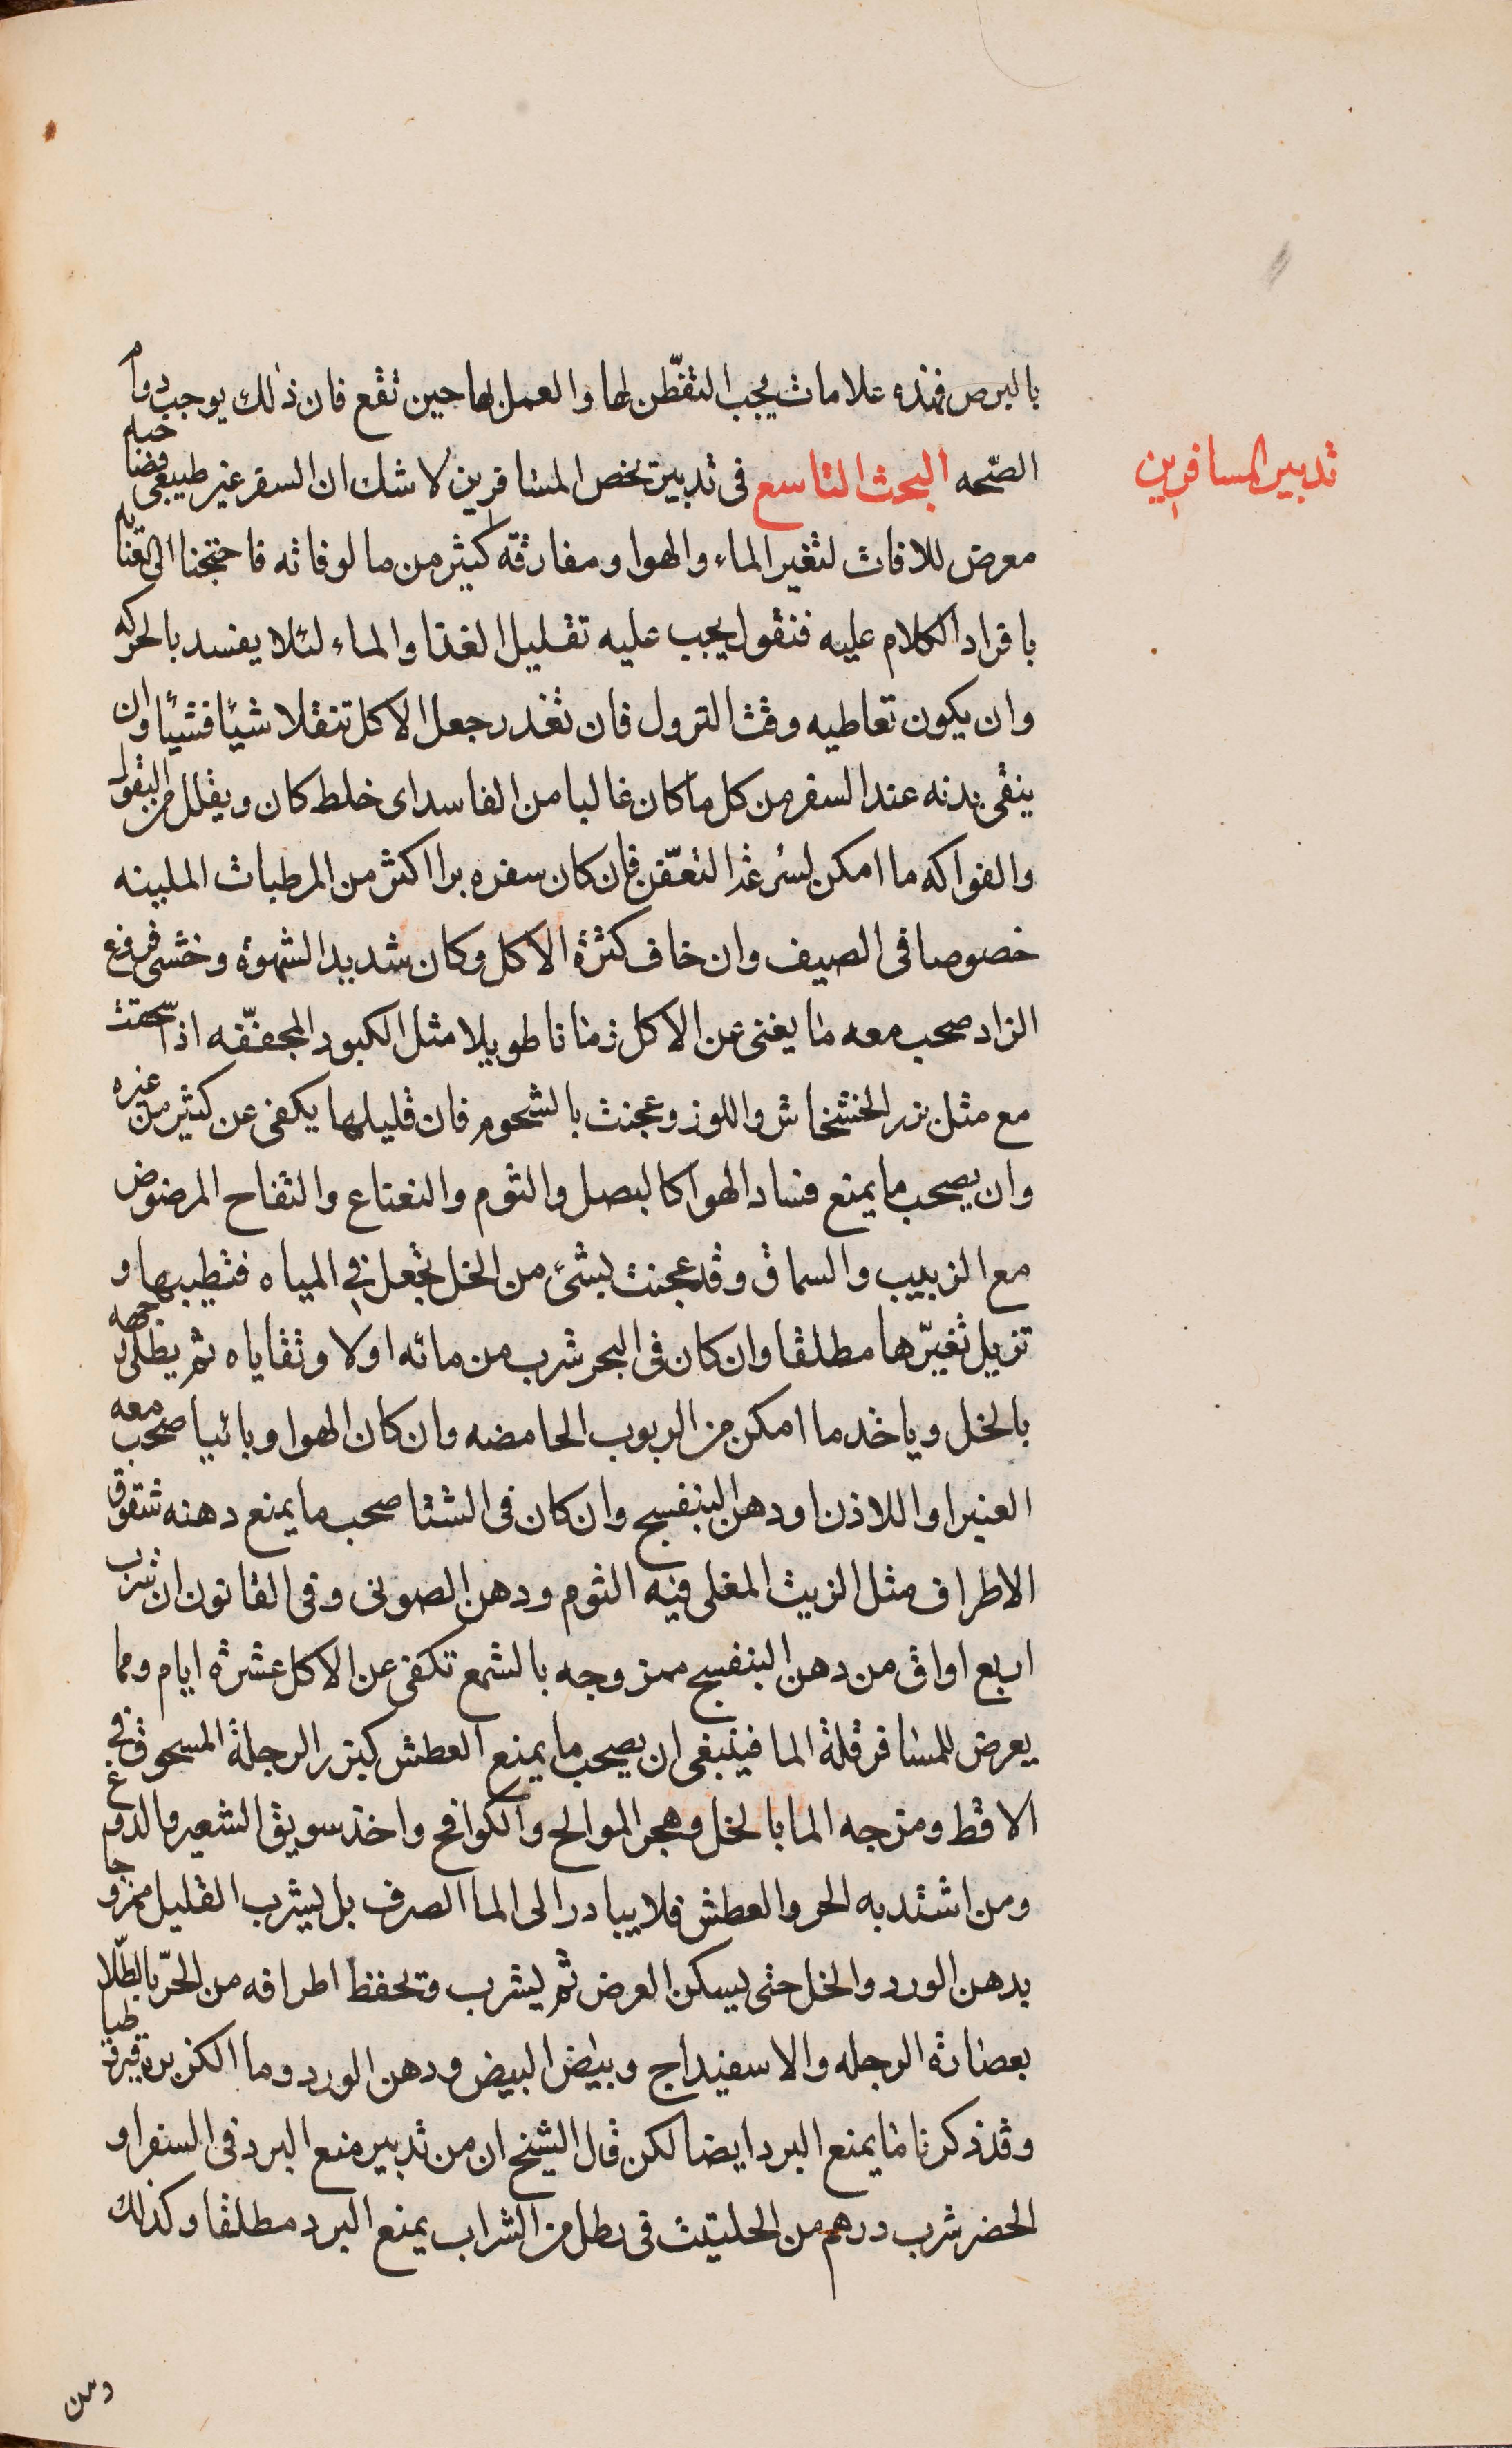 بالبرص فهذه علامات يجب التفطّن لها والعمل بها حين تقع فان ذلك يوجب دوام
تدبير المسافرين
الصّحه البحث التاسع فى تدبير يخص المسافرين لا شك ان السفر غير طبيعى فصاحبه
معرض للافات لتغير الماء والهوا ومفارقة كثير من مالوفاته فاحتجنا الى العناية
بافراد الكلام عليه فنقول يجب عليه تقليل الغذا والماء لئلا يفسد بالحركه
وان يكون تعاطيه وقت النزول فان تعذر جعل الاكل تنقلا شيئا فشيئا وان
ينقى بدنه عند السفر من كل ما كان غالبا من الفاسد اى خلط كان ويقلل من البقول
والفواكه ما امكن لسُرعة التعفّن فان كان سفره برا اكثر من المرطبات الملينه
خصوصا فى الصيف وان خاف كثرة الاكل وكان شديد الشهوة وخشى فروغ
الزاد صحب معه ما يغنى عن الاكل زمانا طويلا مثل الكبود المجففّه اذا سحقت
مع مثل بزر الخشخاش واللوز وعجنت بالشحوم فان قليلها يكفى عن كثير من غيره
وان يصحب ما يمنع فساد الهوا كالبصل والثوم والنعناع والتفاح المرضوض
مع الزبيب والسماق وقد عجنت بشئ من الخل تجعل فى المياه فتطيبها و
تزيل تغيّرها مطلقا وان كان فى البحر شرب من مائه اولا وتقاياه ثم يطلى وجهه
بالخل وياخذ ما امكن من الربوب الحامضه وان كان الهوا وبائيا صحب معه
العنبر او اللاذن او دهن البنفسج وان كان فى الشتا صحب ما يمنع دهنه شقوق
الاطراف مثل الزيت المغلى فيه الثوم ودهن الصونى وفى القانون ان شرب
اربع اواق من دهن البنفسج ممزوجه بالشمع تكفى عن الاكل عشرة ايام ومما
يعرض للمسافر قلة الما فينبغى ان يصحب ما يمنع العطش كبزر الرجلة المسحوق فى
الاقط ومزجه الما بالخل وهجر الموالح والكوامخ واخذ سويق الشعير والدوغ
ومن اشتد به الحر والعطش فلا يبادر الى الما الصرف بل يشرب القليل ممزوجا
بدهن الورد والخل حتى يسكن العرض ثم يشرب وتحفظ اطرافه من الحرّ بالطّلا
بعصارة الرجله والاسفيداج وبياض البيض ودهن الورد وما الكزبره قيروطيا
وقد ذكرنا ما يمنع البرد ايضا لكن قال الشيخ ان من تدبير منع البرد فى السفر او
الحضر شرب درهم من الحلتيت فى رطل من الشراب يمنع البرد مطلقا وكذلك
ومن